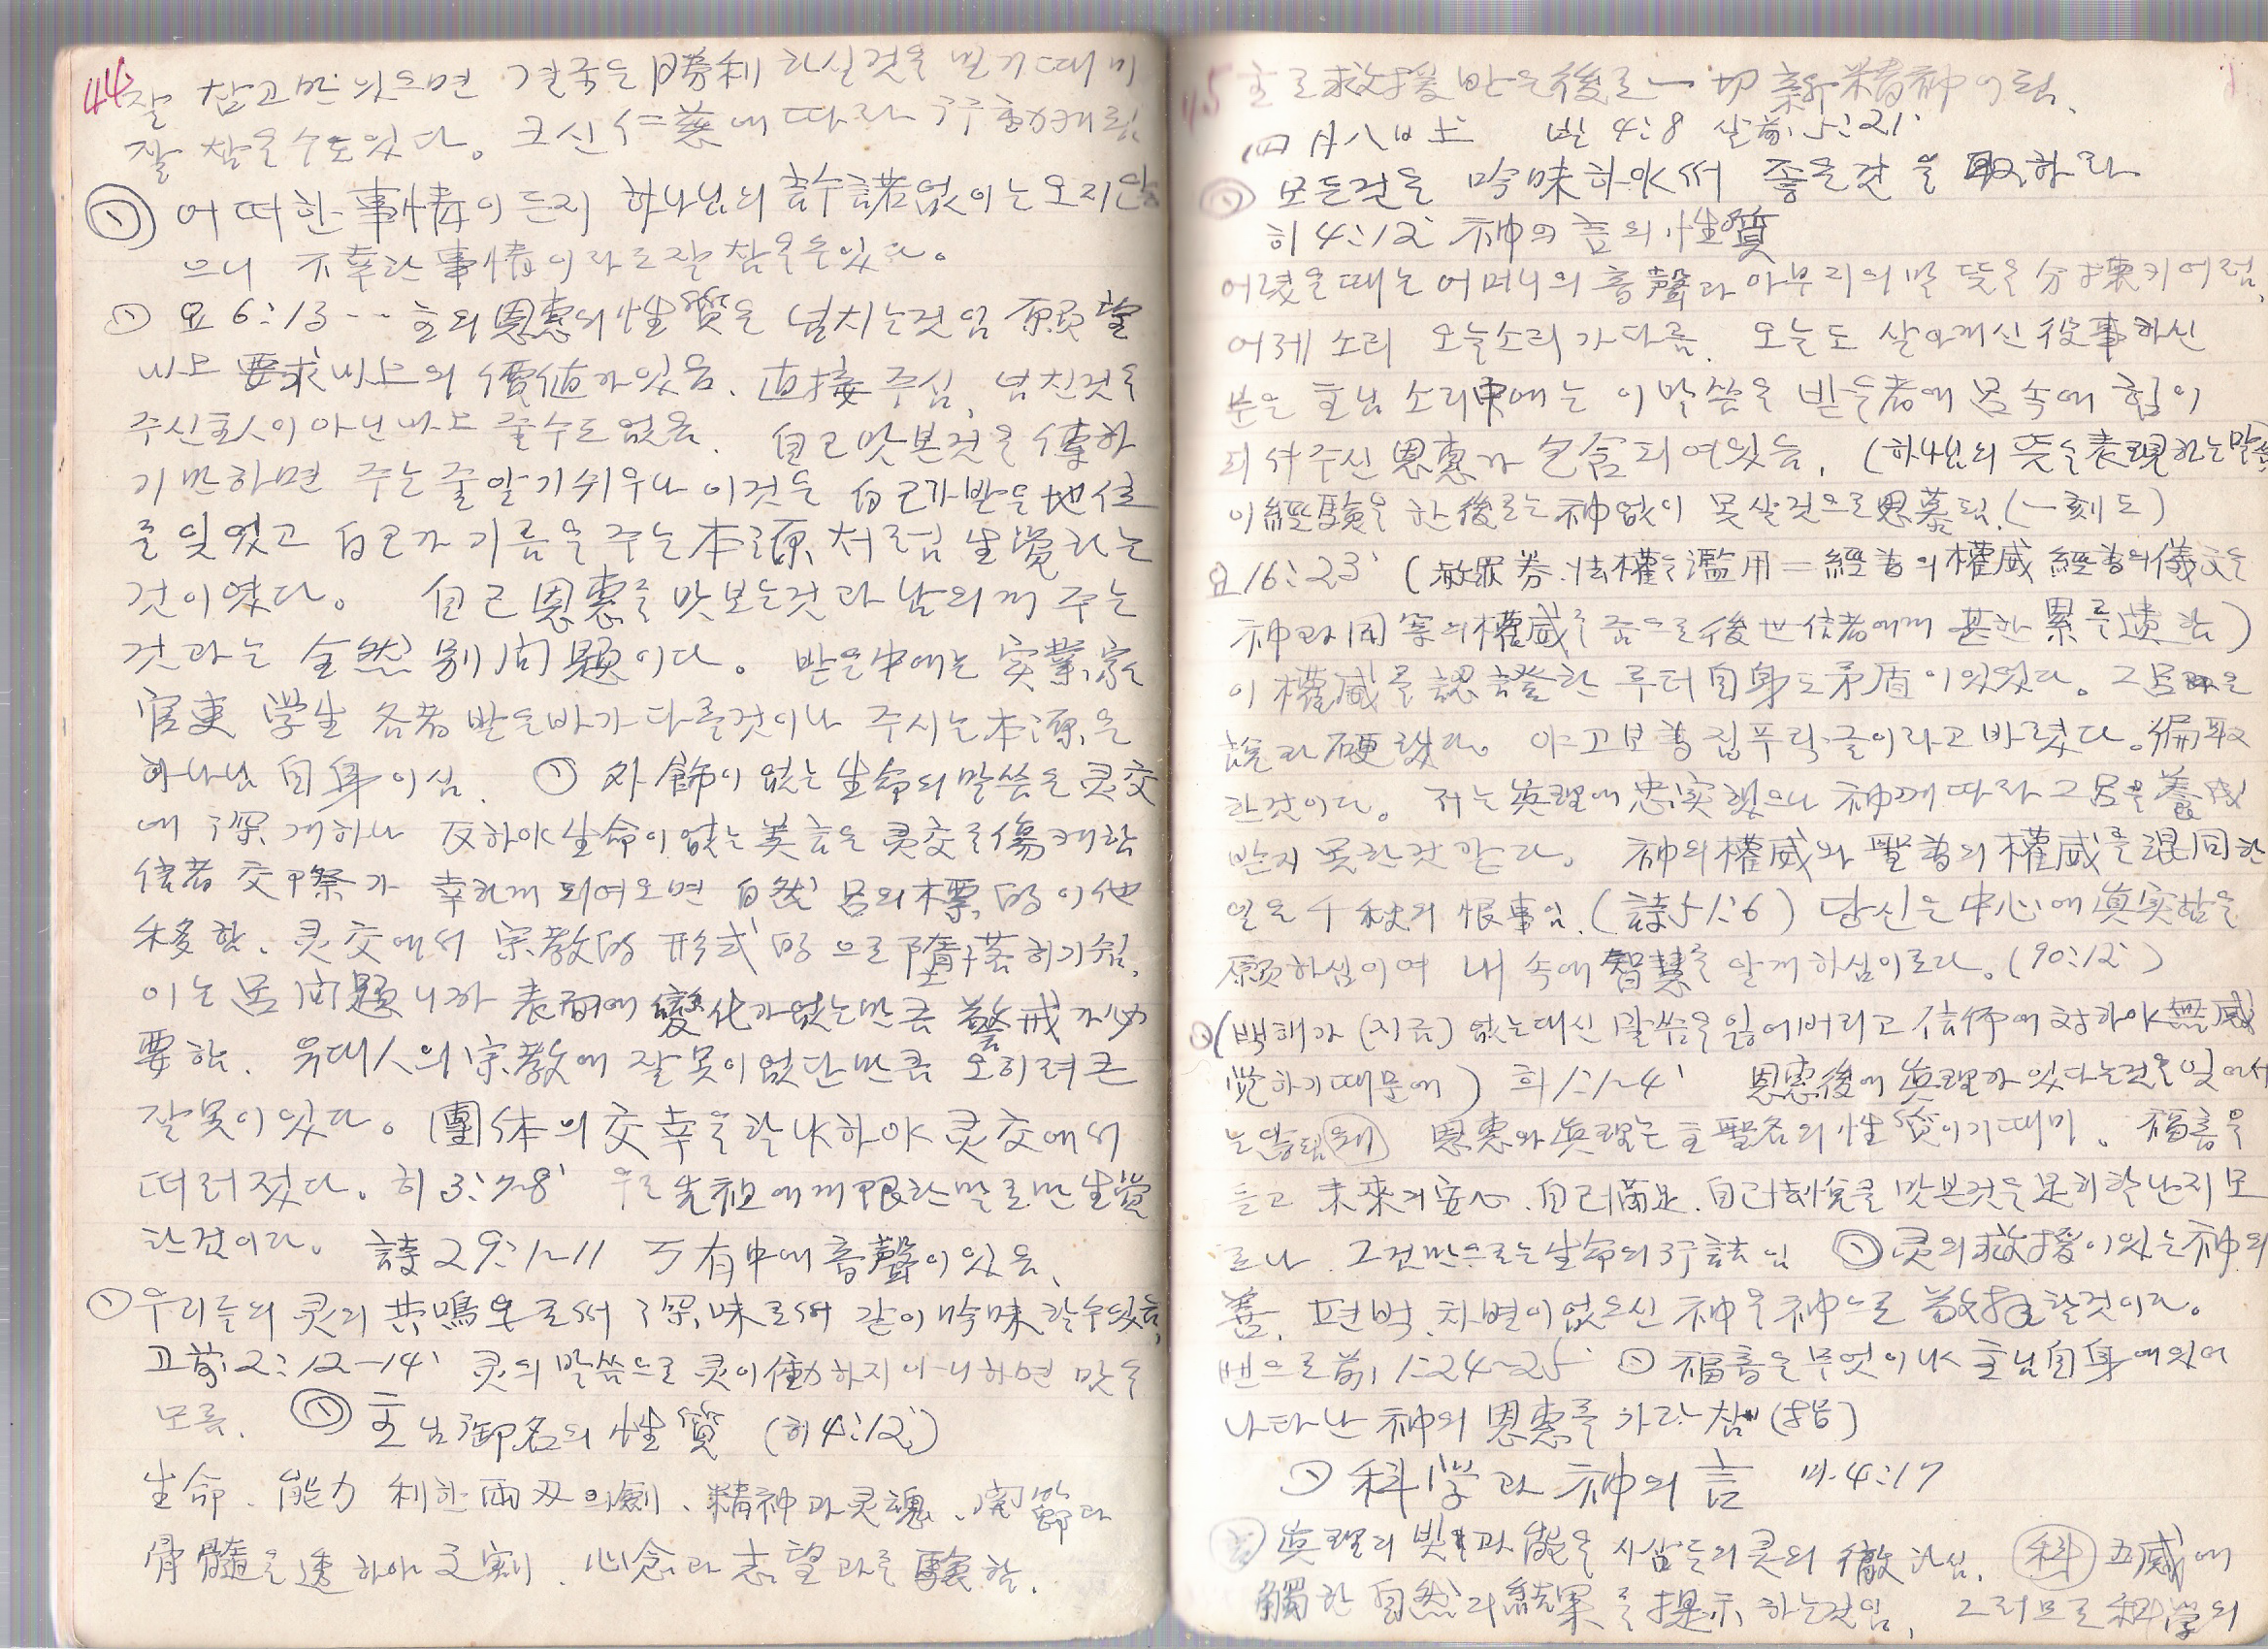 44
잘 참고만 있으면 결국은 勝利 하실것을 믿기 때미
잘 참을수도있다。 크신 仁慈에 따라 行動케됨
어떠한 事情이든지 하나님의 許諾없이는 오지안
으니 不幸한 事情이라도 잘 참을수있다。
요 6:13 … 主의 恩惠의 性質은 넘치는것임 願望
以上 要求以上의 價値가있음. 直接 주심, 넘친것을
주신主人이 아닌以上 줄수도없음. 自己맛본것을 傳하
기만하면 주는줄알기쉬우나 이것은 自己가받은地位
를 잊었고 自己가 기름을 주는 本源처럼 生覚하는
것이였다。 自己恩惠를 맛보는것과 남의게 주는
것과는 全然 別問題이다。 받은中에는 実業家
官吏 学生 各者 받은바가 다를것이나 주시는本源은
하나님 自身이심. 外飾이 없는 生命의 말씀은 灵交
에 深게하나 反하야 生命이 없는 美言은 灵交를 傷케함
信者 交際가 幸하게 되여오면 自然 呂의 標的이 他
移함. 灵交에서 宗教的 形式的으로 墮落하기쉼.
이는 呂問題니까 表面에 變化가 없는만큼 警戒가 必
要함. 유대人의 宗教에 잘못이 없단만큼 오히려 큰
잘못이 있다。 團体의 交幸을 할야하야 灵交에서
떠러젔다。 히 3:7-8 우로 先祖에게 限한말로만 生覚
한것이다。 詩 29:1~11 万有中에 音聲이있음、
우리들의 灵의 共鳴으로써 深味로써 같이 吟味할수있음
고前 2:12-14 灵의 말씀으로 灵이 働하지 아니하면 맛을
모름. 主님 御名의 性質 (히 4:12)
生命. 能力 利한 兩刃의劍、精神과 灵魂、関節과
骨髓을 透하야 刺. 心念과 志望과를 驗함.
45 主로 救援받은後로 一切 新精神이됨.
四月八日土 빌 4:8 살前 5:21
모든것을 吟味하야써 좋은것을 取하라
히 4:12 神의 言의 性質
어렸을때는 어머니의 音聲과 아부지의 말 뜻을 分揀키어렴.
어제 소리 오늘소리가 다름. 오늘도 살아게신 役事하신
분은 主님 소리中에는 이말씀을 받는者에 呂속에 힘이
되셔 주신 恩惠가 包含되여있음, (하나님의 뜻을 表現하는말씀
이經驗을 한後로는 神없이 못살것으로 思慕됨.(一刻도)
요 16:23 (赦罪券.法權을 濫用＝經書의 權威 經書의 儀文을
神과 同等의權威를 줌으로 後世信者에게 甚한 累를 遺함)
이 權威를 認證한 루터自身도 矛盾이있었다。 그呂은
說과 硬했다。 야고보書 집푸락글이라고 바렸다。偏取
한것이다。 저는 眞理에 忠実했으나 神께 따라 그呂을 養成
받지 못한것 같다。 神의權威와 聖書의 權威를 混同한
일은 千秋의 恨事임.(詩51:6) 당신은 中心에 眞実함을
願하심이여 내 속에 智慧를 알게 하심이로다。(90:12)
(백해가 (지금) 없는대신 말씀을 잃어버리고 信仰에 対하야 無感
覚하기때문에) 히 1:1~4 恩惠後에 眞理가 있다는것을 잊어서
는 않됨 왜 恩惠와 眞理는 主聖名의 性質이기때미。 福音을
듣고 未來거 安心、自己滿足、自己 悅를 맛본것을 足히할난지모
르나. 그것만으로는 生命의 誇임 灵의 救援이있는 神의
善、편벽、차별이없으신 神을 神으로 할것이다。
벧으로前 1:24~25 福音은 무엇이냐 主님自身에있어
나타난 神의 恩惠를 가라침 (指)
科学과 神의 言 마 4:17
眞理의 빛과 能을 사람들의 灵의 徹하심. 科 五感에
觸한 自然의 結果를 提示하는것임、 그러므로 科学의